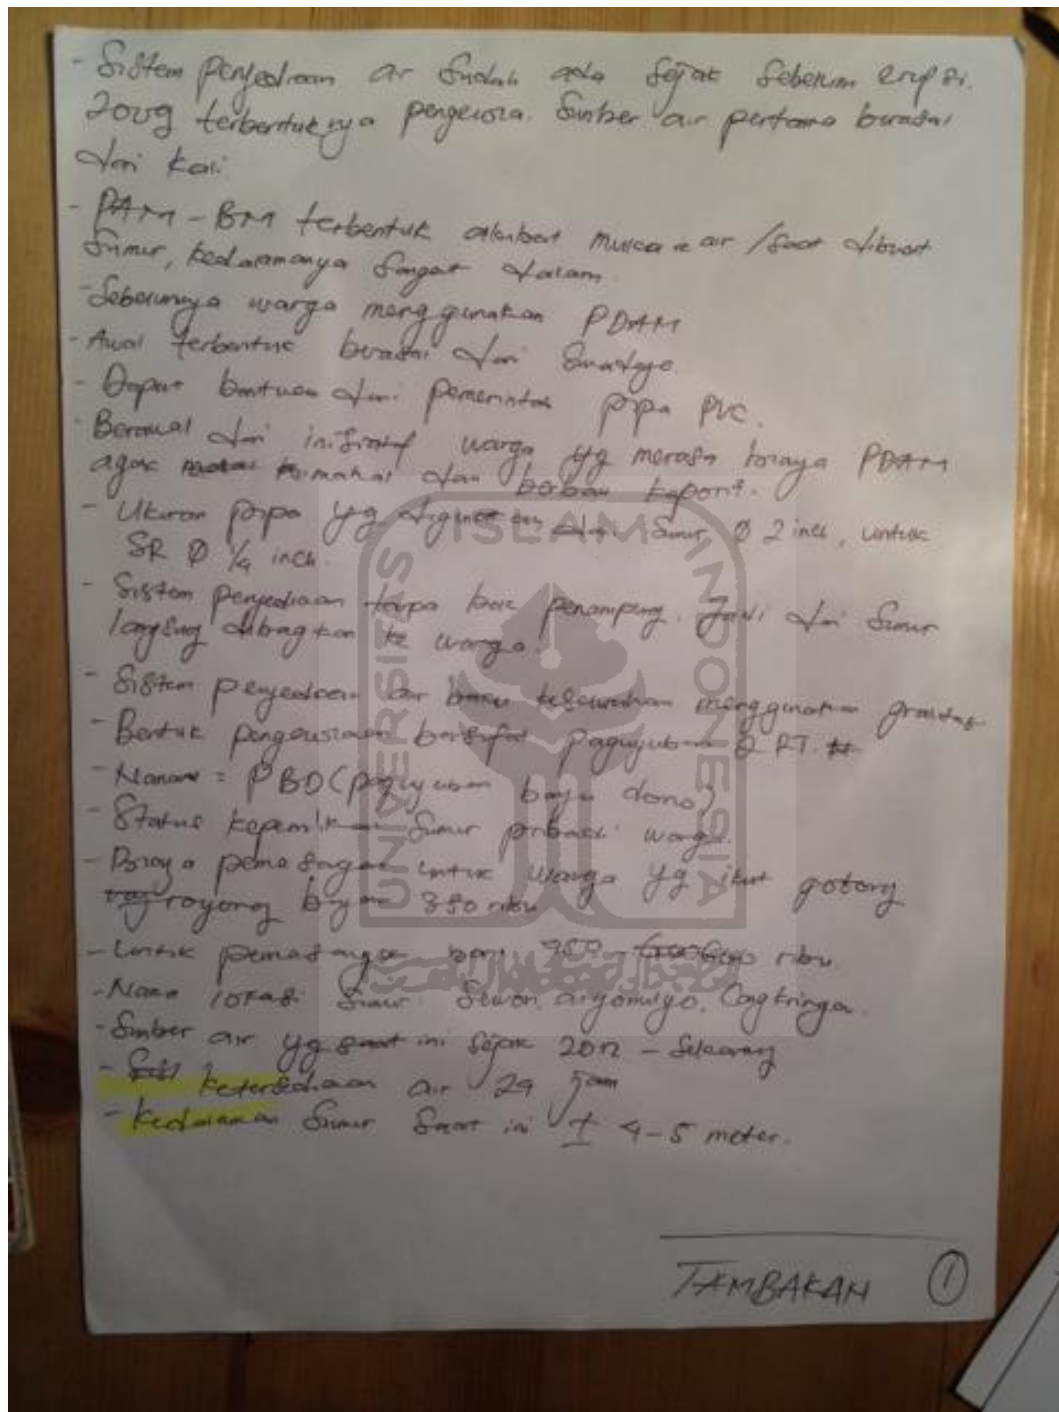 - Sistem penyediaan air sudah ada sejak sebelum erupsi.
2009 terbentuknya pengelola. Sumber air pertama berasal
dari kali.
- PAM-BM terbentuk akibat muka air / saat dibuat
Sumur, kedalamanya sangat dalam.
- Sebelumnya warga menggunakan PDAM
- Awal terbentuk berasal dari
- Dapat bantuan dari pemerintah pipa PVC.
- Berawal dari inisiatif warga yg merasa biaya PDAM
agak mahal dan berbau kaporit.
- Ukuran pipa yg digunakan dari Sumur Ø 2 inch, untuk
SR Ø 1/4 inch.
- Sistem penyediaan tanpa bak penampung. Jadi dari Sumur
langsung dibagikan ke warga.
- Sistem penyediaan air keseluruhan menggunakan gravitasi
- Bentuk pengurusan bersifat paguyuban 2 RT.
- Nama = PBD (paguyuban bayu dono)
- Status kepemilikan Sumur pribadi warga.
- Biaya pemasangan untuk warga yg ikut gotong
royong bayar 350 ribu
- Untuk pemasangan baru 950 - ribu.
- Nama lokasi Sumur. argomulyo, Cangkringan.
- Sumber air yg saat ini sejak 2012 - Sekarang
- ketersediaan air 24 jam
- kedalaman Sumur Saat ini ± 4-5 meter.
TAMBAKAN 1
UNIVERSITAS ISLAM INDONESIA